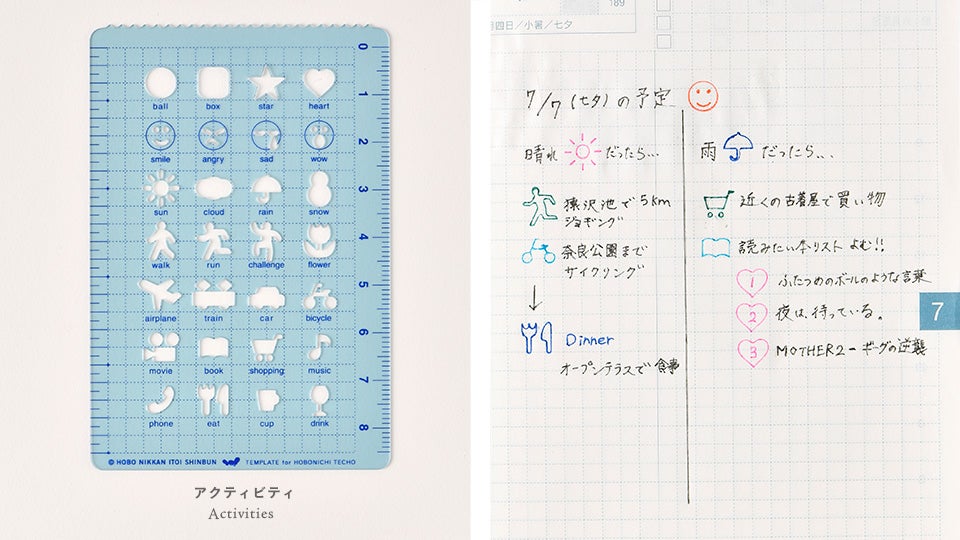 0
ball box star heart
1
smile angry sad wow
2
sun cloud rain snow
3
walk run challenge flower
4
airplane train car bicycle
5
movie book shopping music
6
phone eat cup drink
7
8
© HOBO NIKKAN ITOI SHINBUN TEMPLATE for HOBONICHI TECHO
アクティビティ
Activities
189
四日／小暑／七夕
7/7 (七夕)の予定
晴れ だったら…
猿沢池で5km
ジョギング
奈良公園まで
サイクリング
Dinner
オープンテラスで食事
雨 だったら...
近くの古着屋で買い物
読みたい本リスト よむ!!
1 ふたつめのボールのような言葉
2 夜は、待っている。
3 MOTHER2ーギーグの逆襲
7